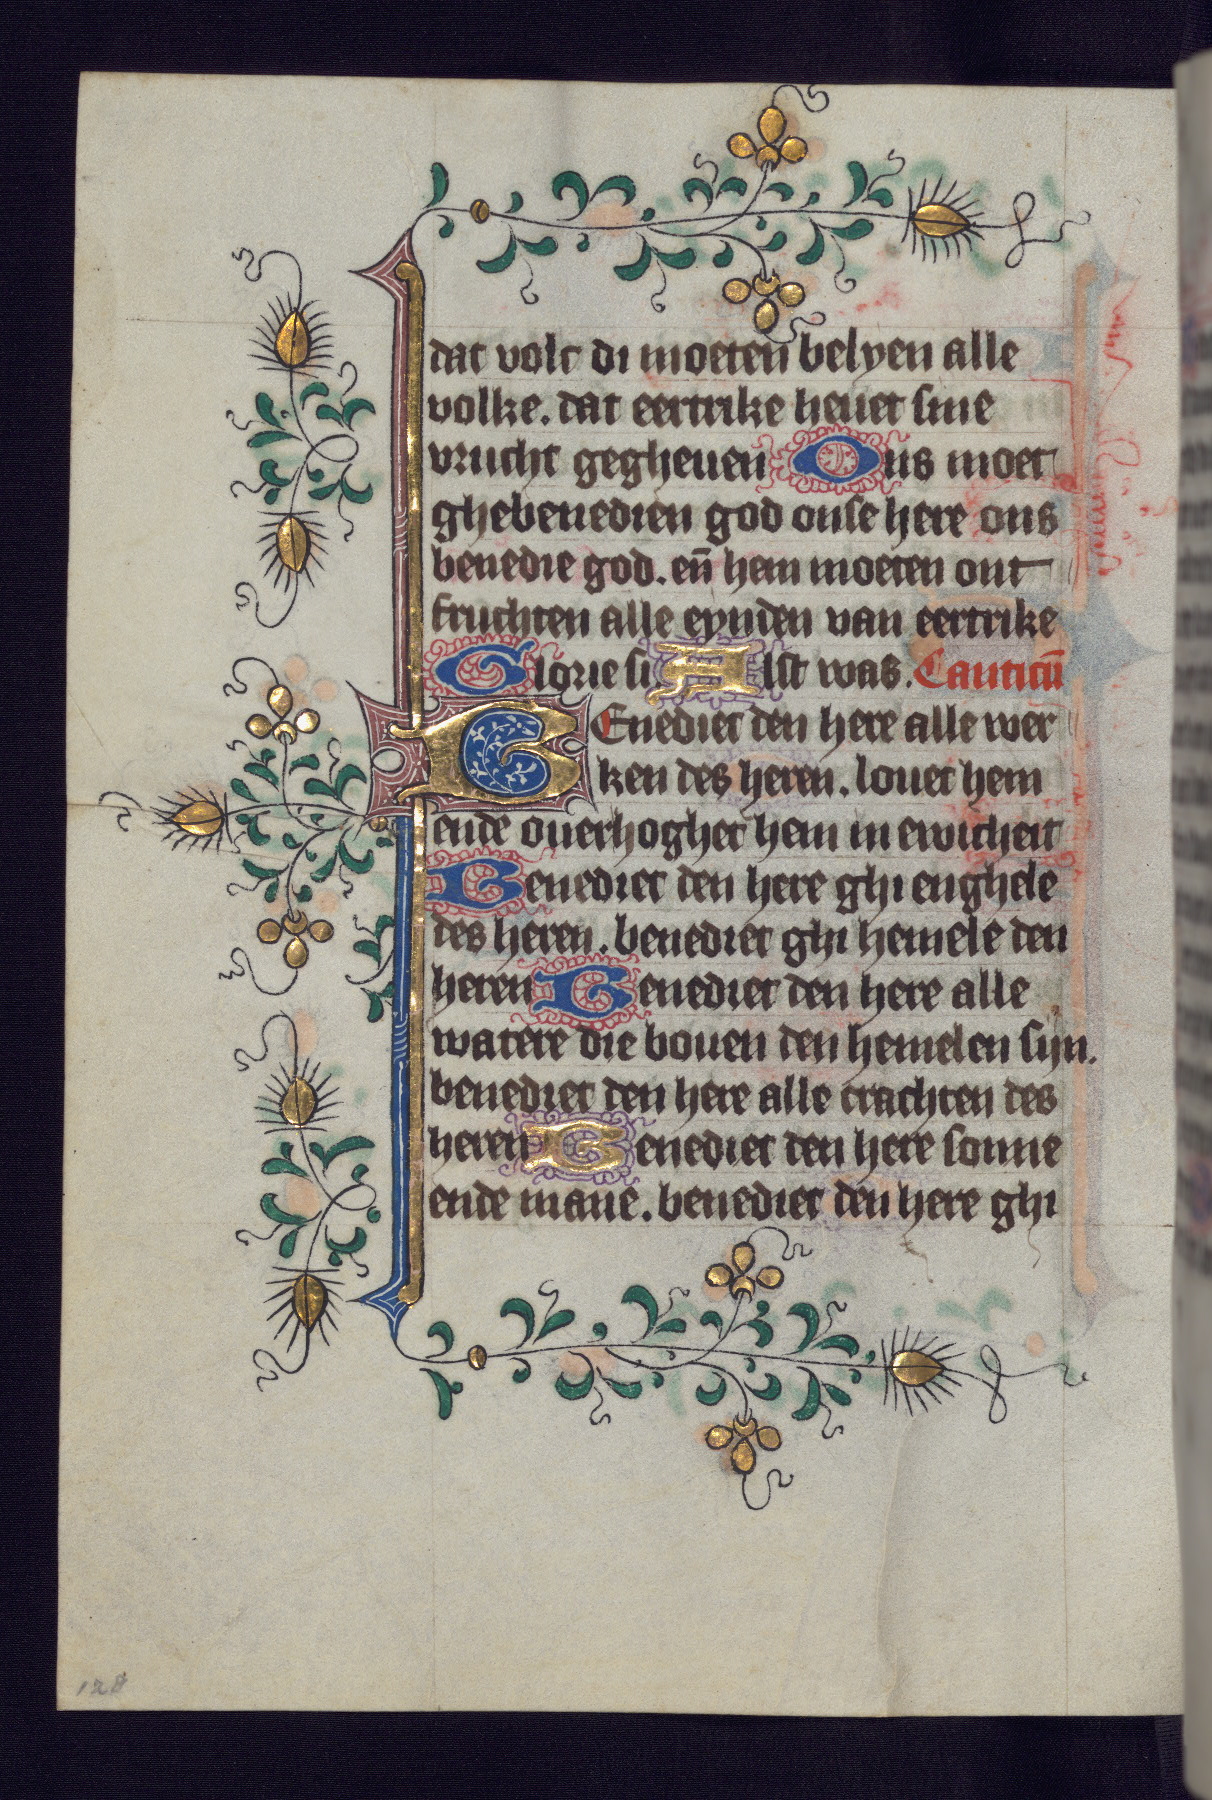 dat volc di moeten belyen alle
volke. dat eertrike heuet sine
vrucht gegheuen Ons moet
ghebenedien god onse here ons
benedie god. en̄ hem moeten ont
fruchten alle eynden van eertrike
Glorie si Alst was. Canticū
BEnediet den here alle wer
ken des heren. louet hem
ende ouerhoghet hem in ewicheit
Benediet den here ghi enghele
des heren. benediet ghi hemele den
heren Benediet den here alle
watere die bouen den hemelen sijn.
benediet den here alle crachten des
heren Benediet den here sonne
ende mane. benediet den here ghi
128